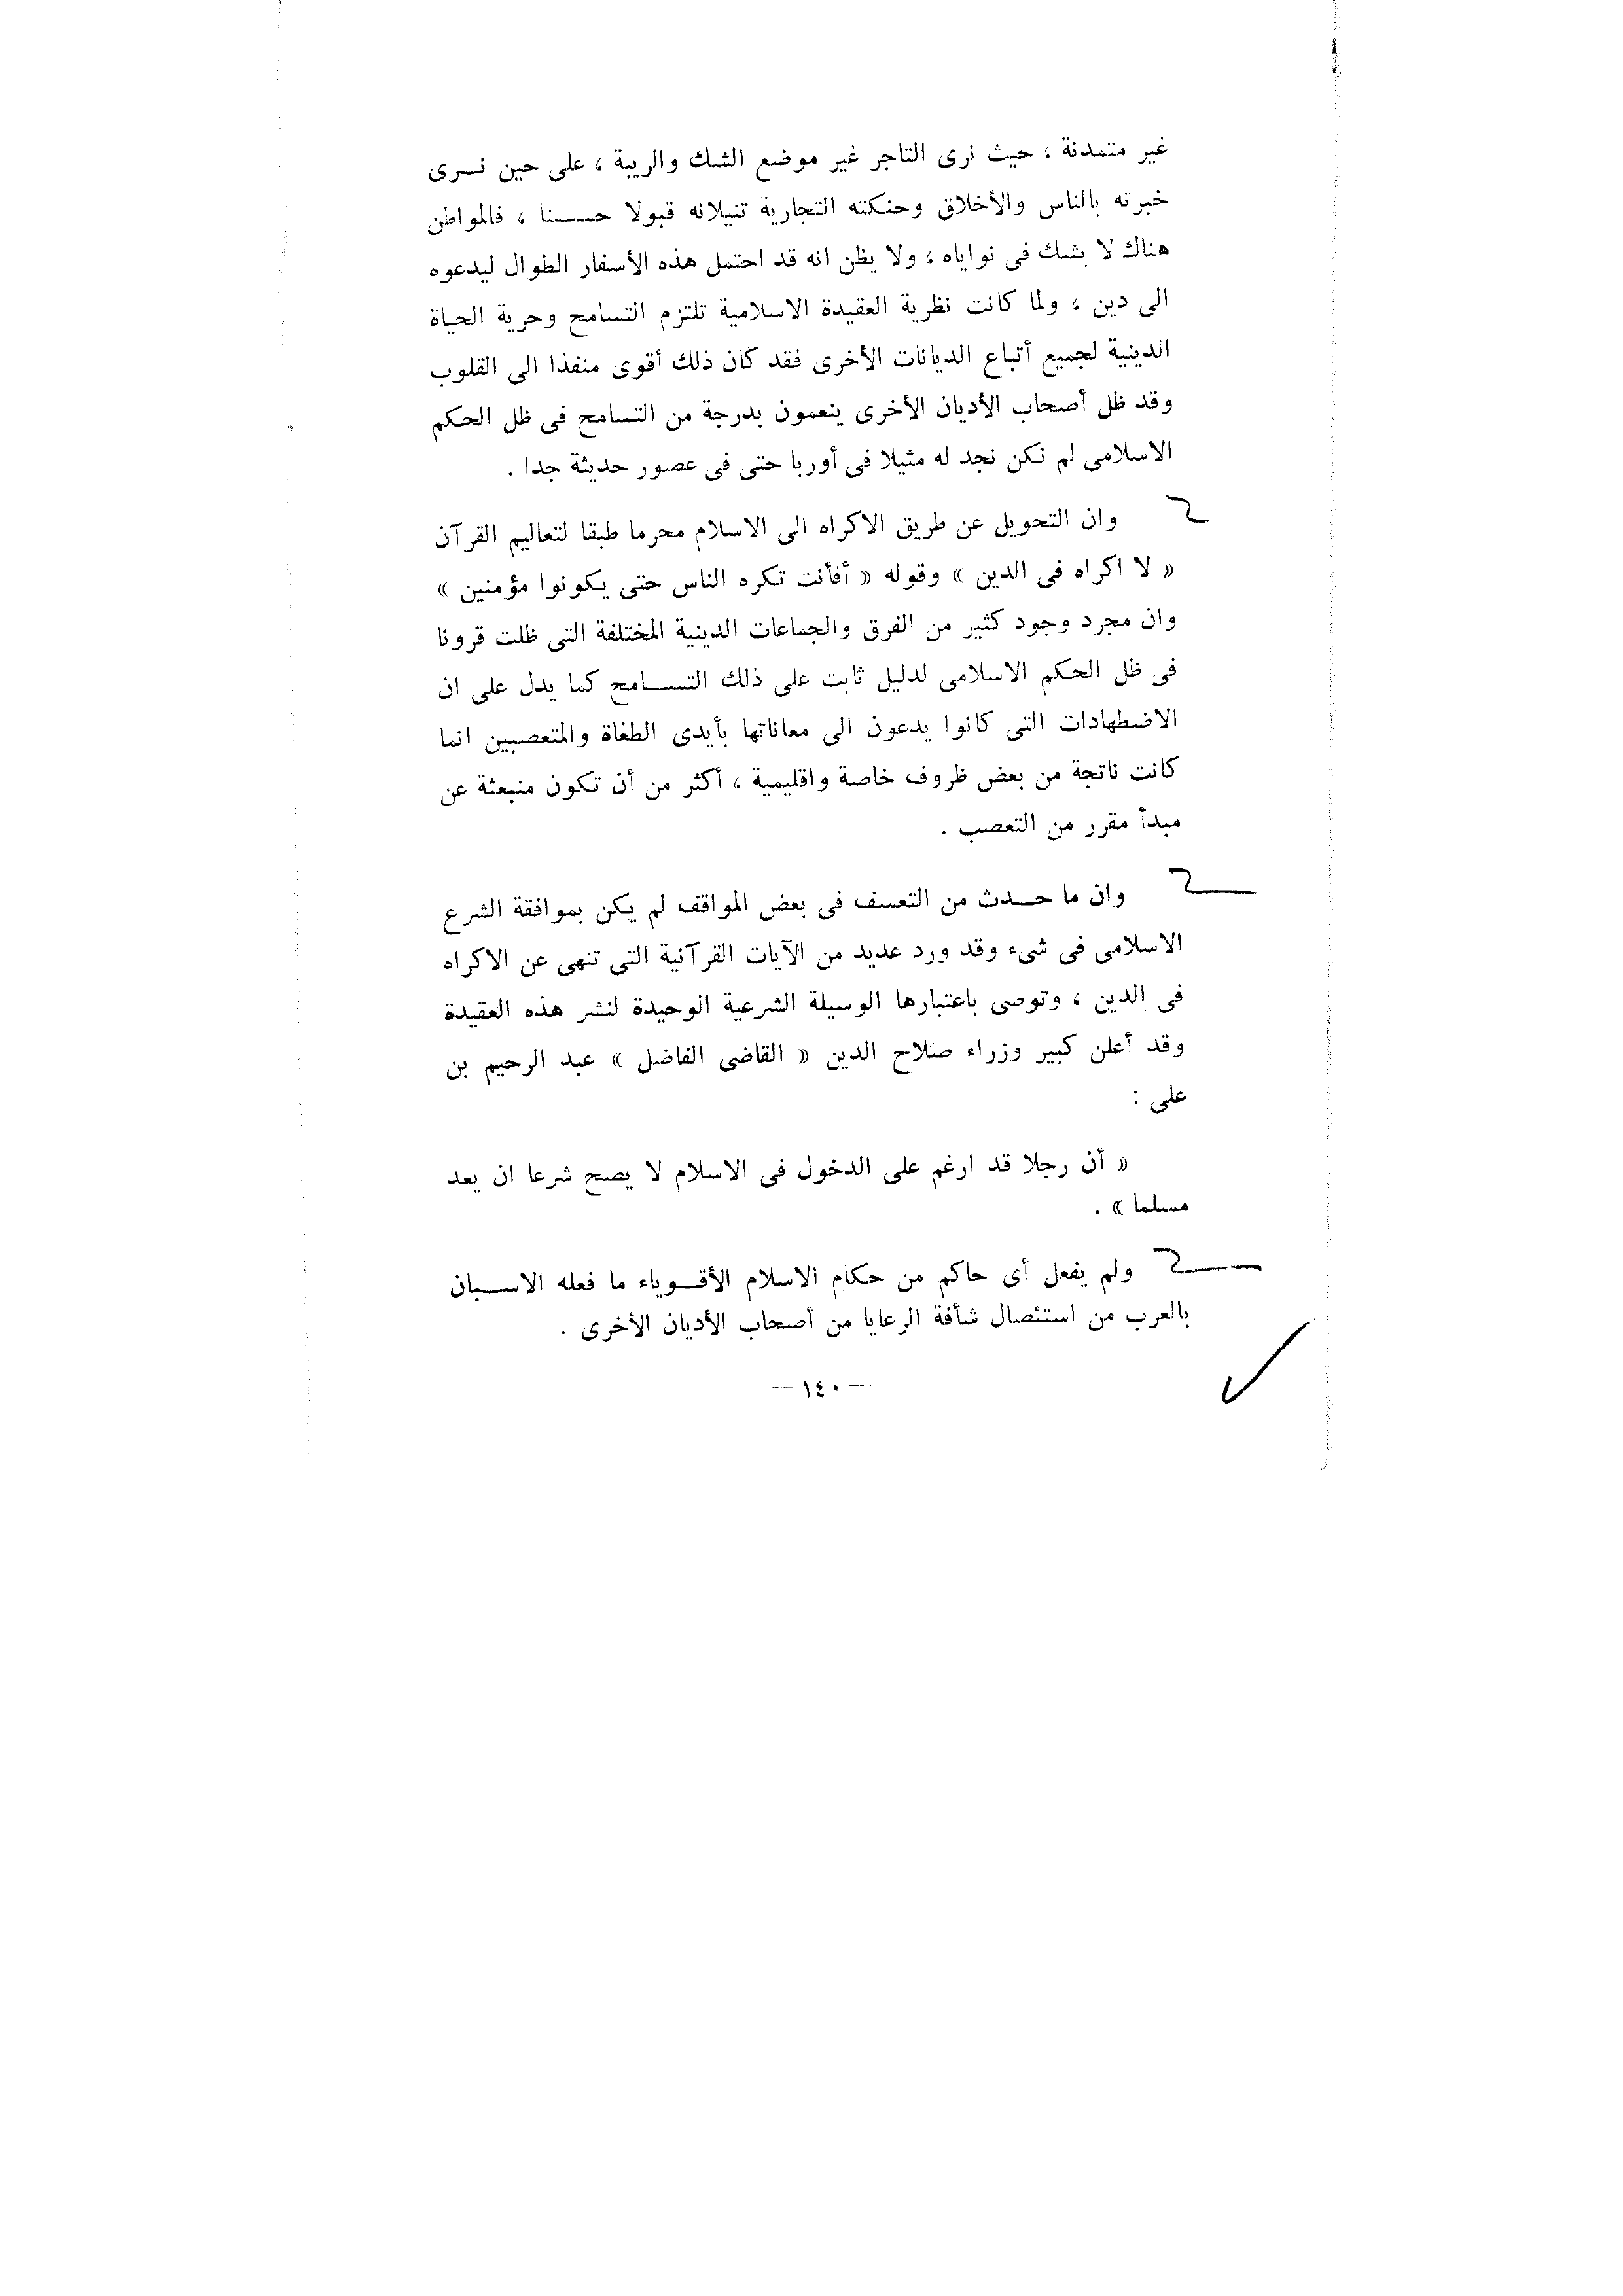 غير متمدنة ، حيث نرى التاجر غير موضع الشك والريبة ، على حين نرى
خبرته بالناس والأخلاق وحنكته التجارية تنيلانه قبولا حسنا ، فالمواطن
هناك لا يشك فى نواياه ، ولا يظن انه قد احتمل هذه الأسفار الطوال ليدعوه
الى دين ، ولما كانت نظرية العقيدة الاسلامية تلتزم التسامح وحرية الحياة
الدينية لجميع أتباع الديانات الأخرى فقد كان ذلك أقوى منفذا الى القلوب
وقد ظل أصحاب الأديان الأخرى ينعمون بدرجة من التسامح فى ظل الحكم
الاسلامى لم نكن نجد له مثيلا فى أوربا حتى فى عصور حديثة جدا .
وان التحويل عن طريق الاكراه الى الاسلام محرما طبقا لتعاليم القرآن
« لا اكراه فى الدين » وقوله « أفأنت تكره الناس حتى يكونوا مؤمنين »
وان مجرد وجود كثير من الفرق والجماعات الدينية المختلفة التى ظلت قرونا
فى ظل الحكم الاسلامى لدليل ثابت على ذلك التسامح كما يدل على ان
الاضطهادات التى كانوا يدعون الى معاناتها بأيدى الطغاة والمتعصبين انما
كانت ناتجة من بعض ظروف خاصة واقليمية ، أكثر من أن تكون منبعثة عن
مبدأ مقرر من التعصب .
وان ما حدث من التعسف فى بعض المواقف لم يكن بموافقة الشرع
الاسلامى فى شىء وقد ورد عديد من الآيات القرآنية التى تنهى عن الاكراه
فى الدين ، وتوصى باعتبارها الوسيلة الشرعية الوحيدة لنشر هذه العقيدة
وقد أعلن كبير وزراء صلاح الدين « القاضى الفاضل » عبد الرحيم بن
على :
« أن رجلا قد ارغم على الدخول فى الاسلام لا يصح شرعا ان يعد
مسلما » .
ولم يفعل أى حاكم من حكام الاسلام الأقوياء ما فعله الاسبان
بالعرب من استئصال شأفة الرعايا من أصحاب الأديان الأخرى .
— ١٤٠ —